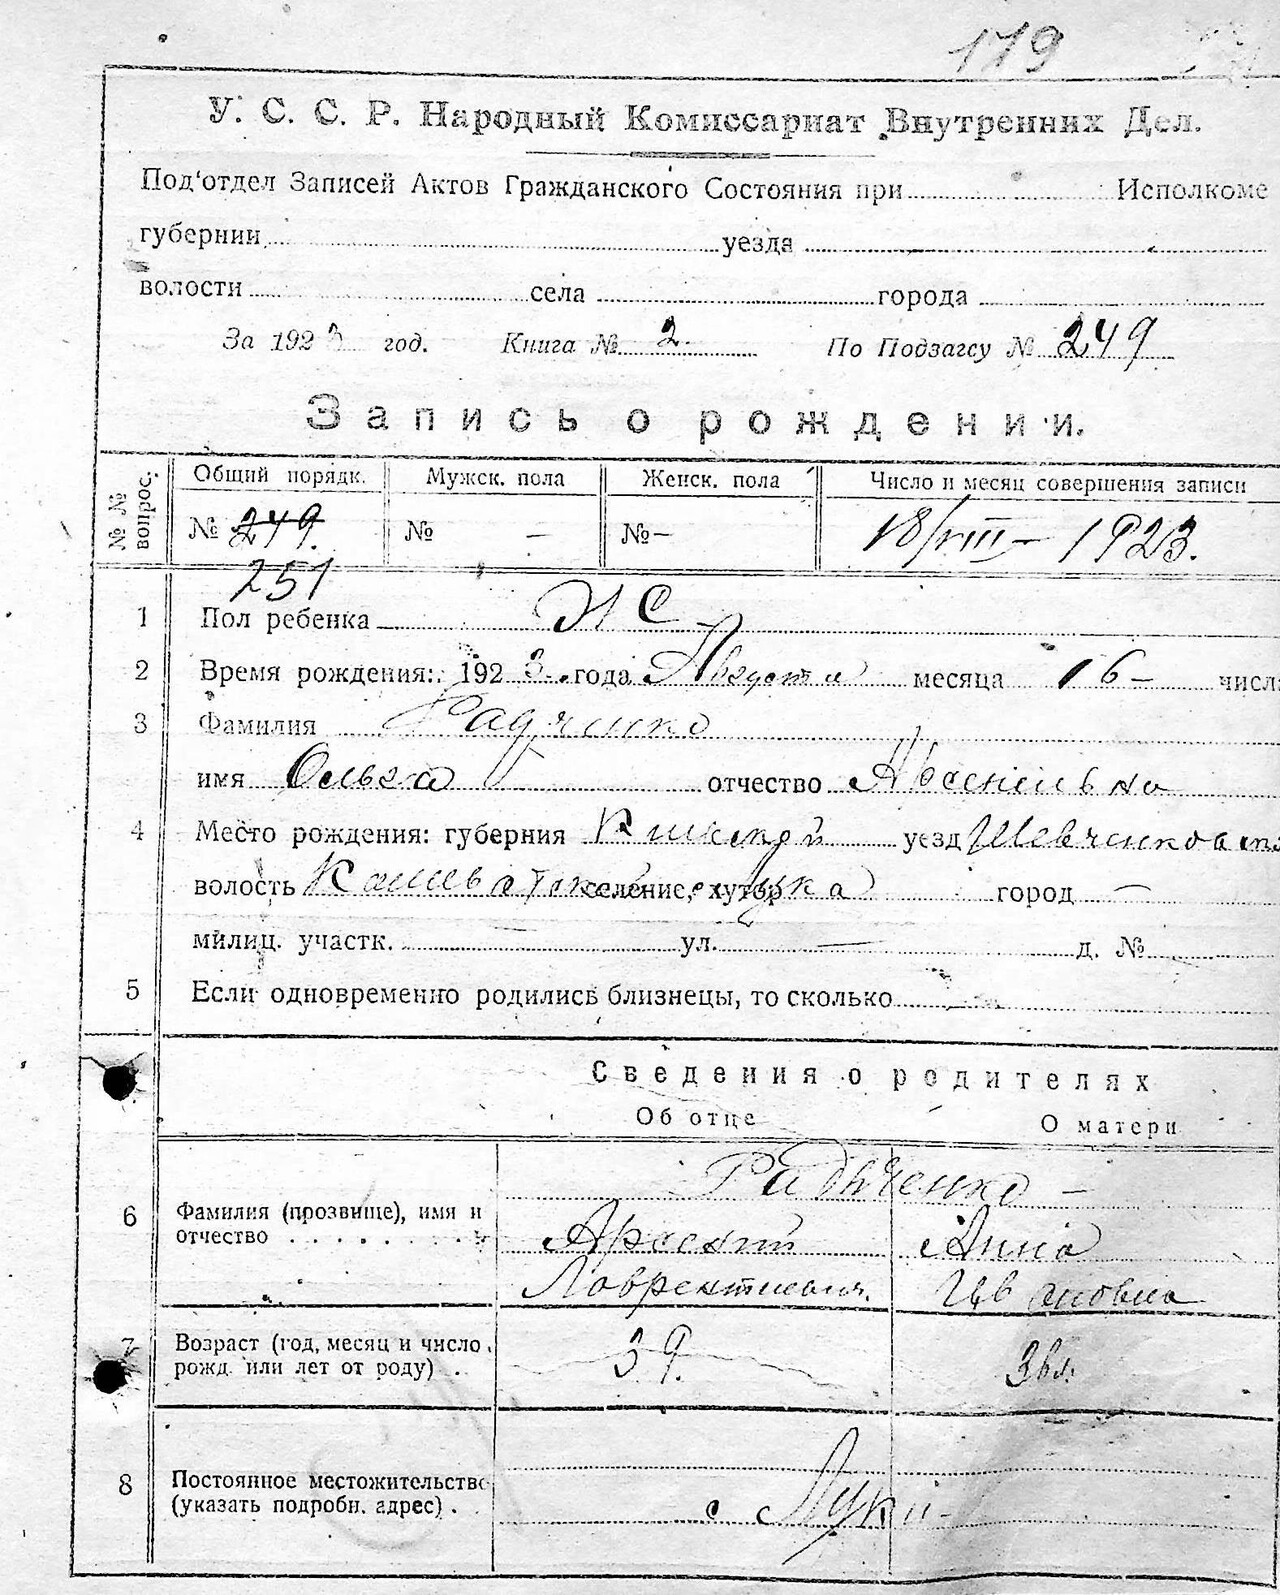 179
У. С. С. Р. Народный Комиссариат Внутренних Дел.
Под'отдел Записей Актов Гражданского Состояния при Исполкоме
губернии уезда
волости села города
За 1923 год. Книга № 2. По Подзагсу № 249
Запись о рождении.
№ № вопрос. Общий порядк. Мужск. пола Женск. пола Число и месяц совершения записи
№ 249. № — № — 18/VIII — 1923.
251
1 Пол ребенка ЖС
2 Время рождения: 1923. года Августа месяца 16 — числа
3 Фамилия Радченко
имя Ольга отчество Арсеньевна
4 Место рождения: губерния Киевской уезд Шевченковск
волость селение, хутор Лука город —
милиц. участк. ул. — д. №
5 Если одновременно родились близнецы, то сколько
Сведения о родителях
Об отце О матери
Радченко —
6 Фамилия (прозвище), имя и отчество Арсений Анна
Лаврентиевич. Ивановна
7 Возраст (год, месяц и число рожд. или лет от роду) 39.
8 Постоянное местожительство (указать подробн. адрес) с Луки —